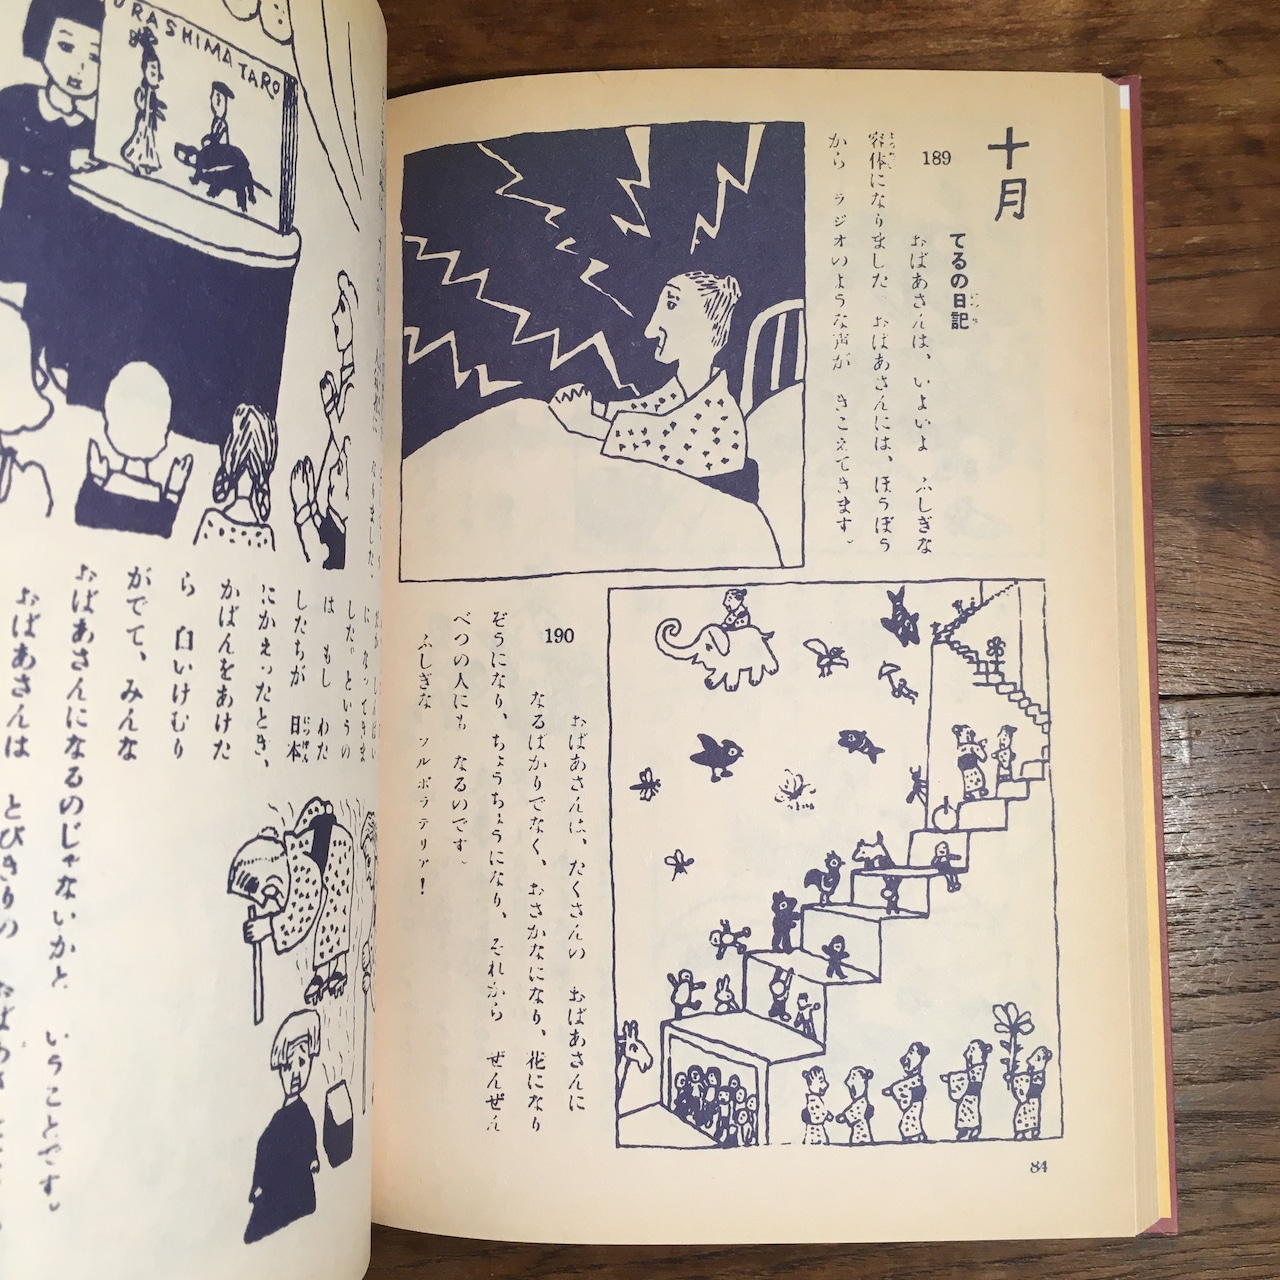 十月
189
てるの日記
にっき
おばあさんは、いよいよ ふしぎな
容体になりました。おばあさんには、ほうぼう
から ラジオのような声が きこえてきます。
190
おばあさんは、たくさんの おばあさんに
なるばかりでなく、おさかなになり、花になり
ぞうになり、ちょうちょうになり、それから ぜんぜん
べつの人にも なるのです。
ふしぎな ソルボラテリア!
84
URASHIMA TARO
なりました。
になってきま
した。というの
は もし わた
したちが 日本
にっぽん
にかえったとき、
かばんをあけた
ら 白いけむり
がでて、みんな
おばあさんになるのじゃないかと いうことです。
おばあさんは とびきりの